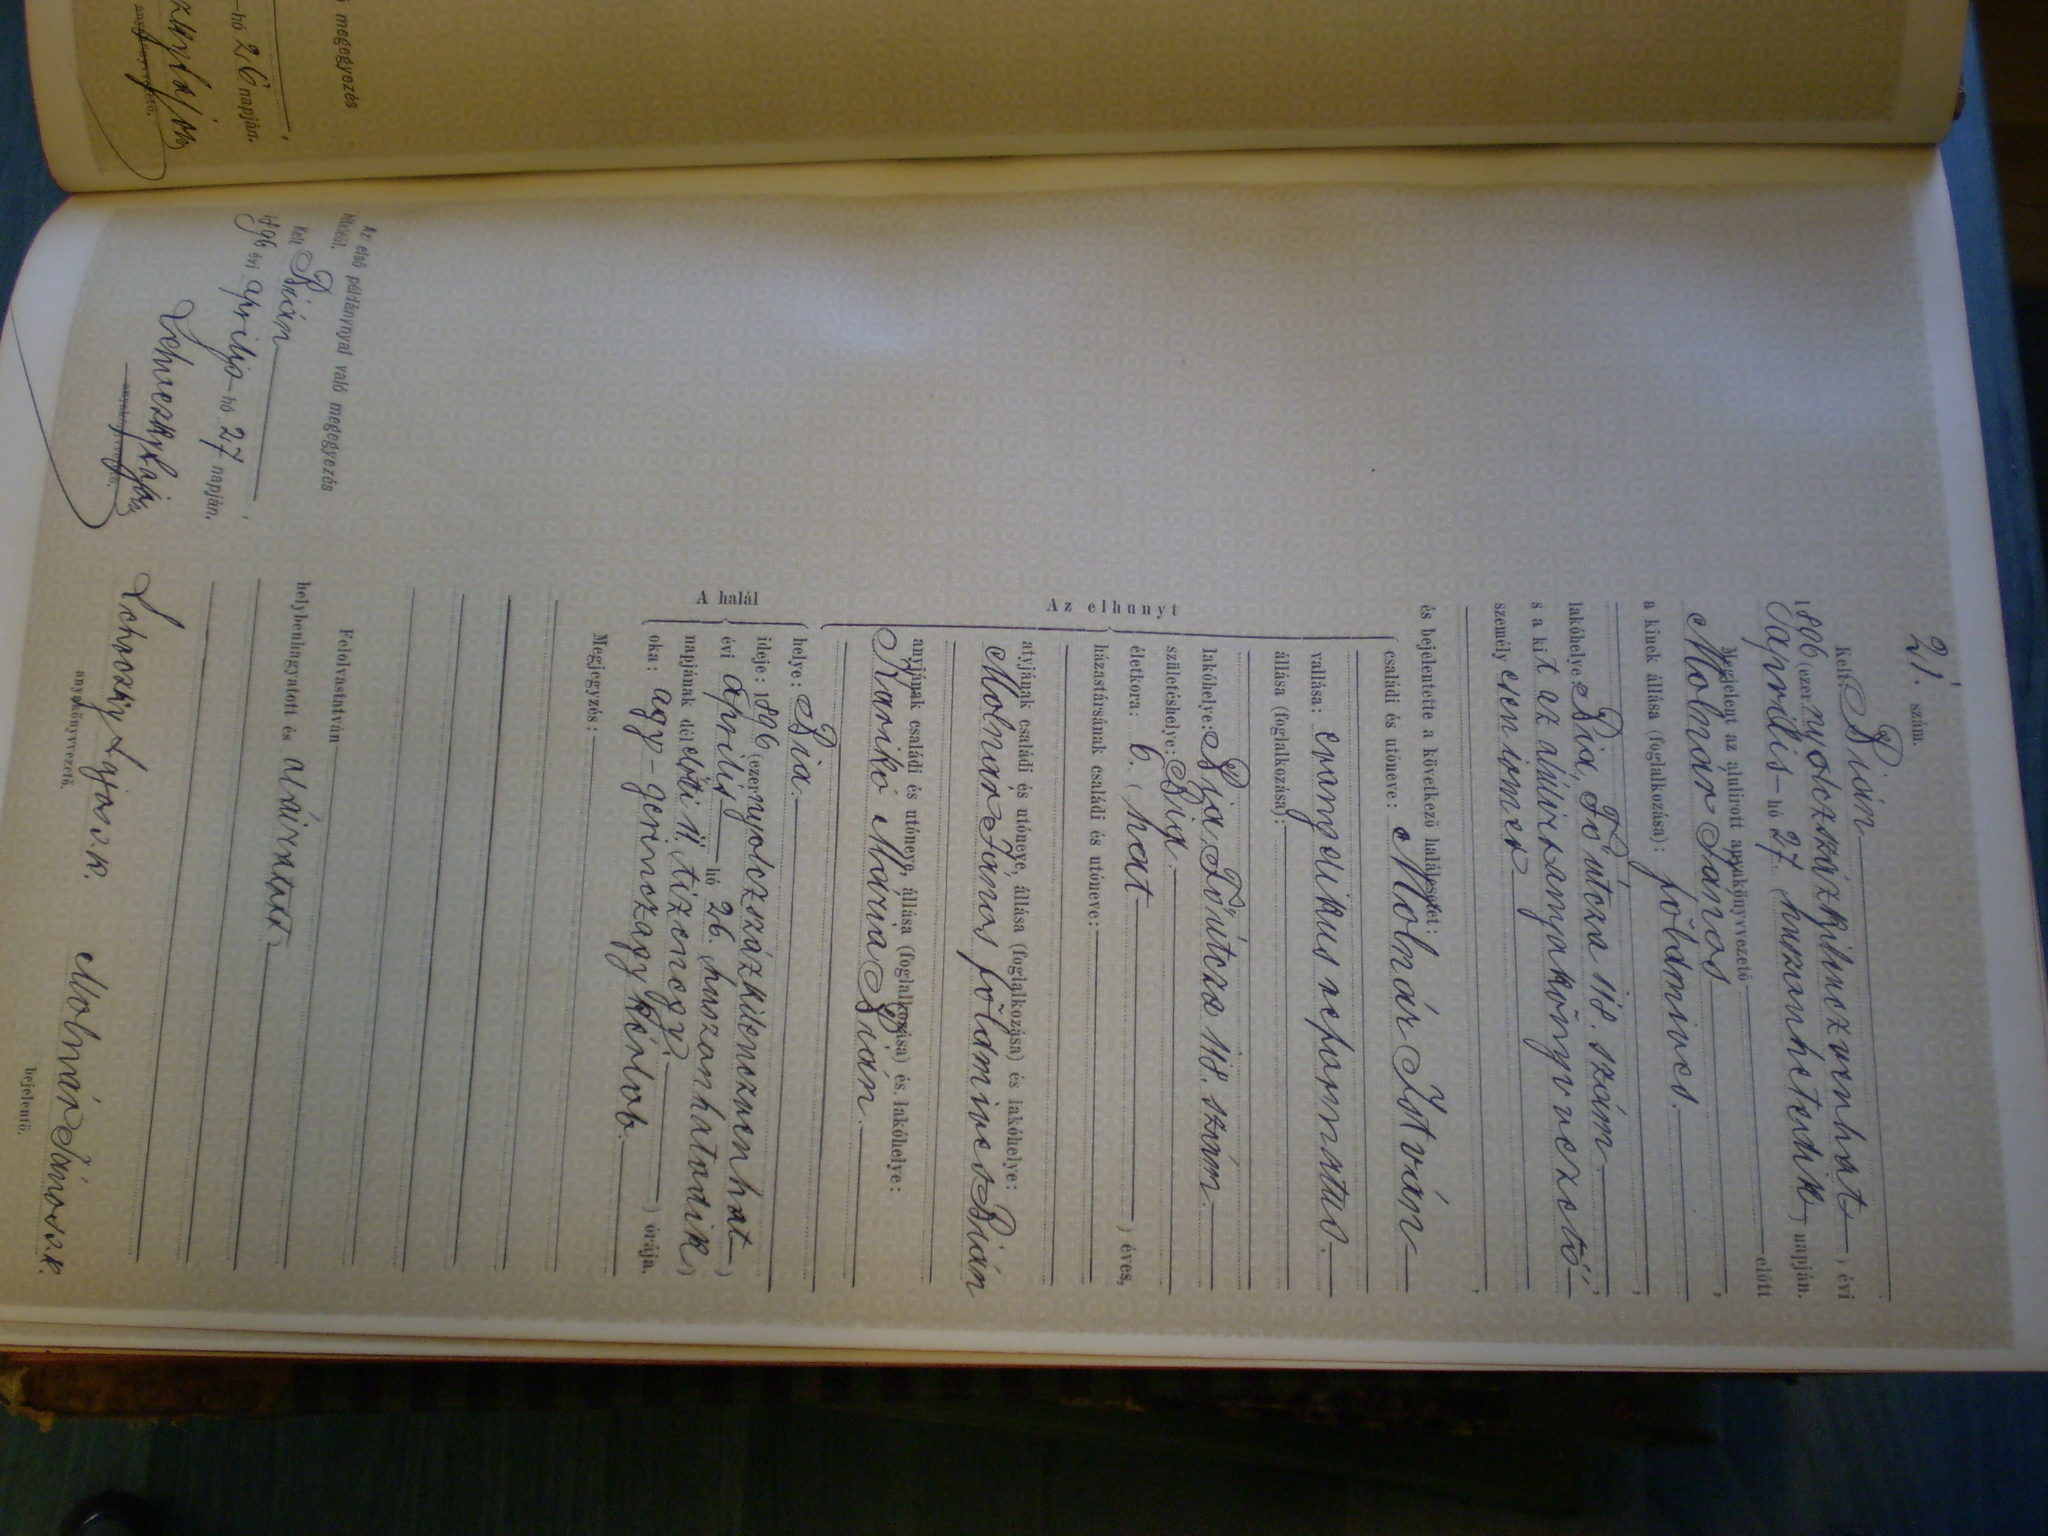 megegyezés
hó 26 napján.
anyakönyvvezető.
21. szám.
Kelt Bián
1896 (ezer nyolczszázkilenczvenhat) évi
április hó 27 (huszonhetedik) napján.
Megjelent az alulirott anyakönyvvezető előtt
Molnár János,
a kinek állása (foglalkozása): földmives.
lakóhelye: Bia, Fő útcza 118. szám,
s a kit az alúlirt anyakönyvvezető
személyesen ismer,
és bejelentette a következő halálesetet:
Az elhunyt
családi és utóneve: Molnár István
vallása: evangelikus református.
állása (foglalkozása):
lakóhelye: Bia, Főútcza 118. szám
születéshelye: Bia.
életkora: 6. (hat) éves,
házastársának családi és utóneve:
atyjának családi és utóneve, állása (foglalkozása) és lakóhelye:
Molnár János földmives Bián
anyjának családi és utóneve, állása (foglalkozása) és lakóhelye:
Karikó Mária Bián.
A halál
helye: Bia.
ideje: 1896 (ezer nyolczszázkilenczvenhat)
évi április hó 26. (huszonhatodik)
napjának dél előtti 11. (tizenegy) órája.
oka: agy-gerinczagy kórlob.
Megjegyzés:
Felolvastatván
helybenhagyatott és aláiratott
anyakönyvvezető.
Molnár János s. k.
bejelentő.
Az első példánynyal való megegyezés
hitéül.
Kelt Bián,
1896 évi április hó 27 napján.
anyakönyvvezető.